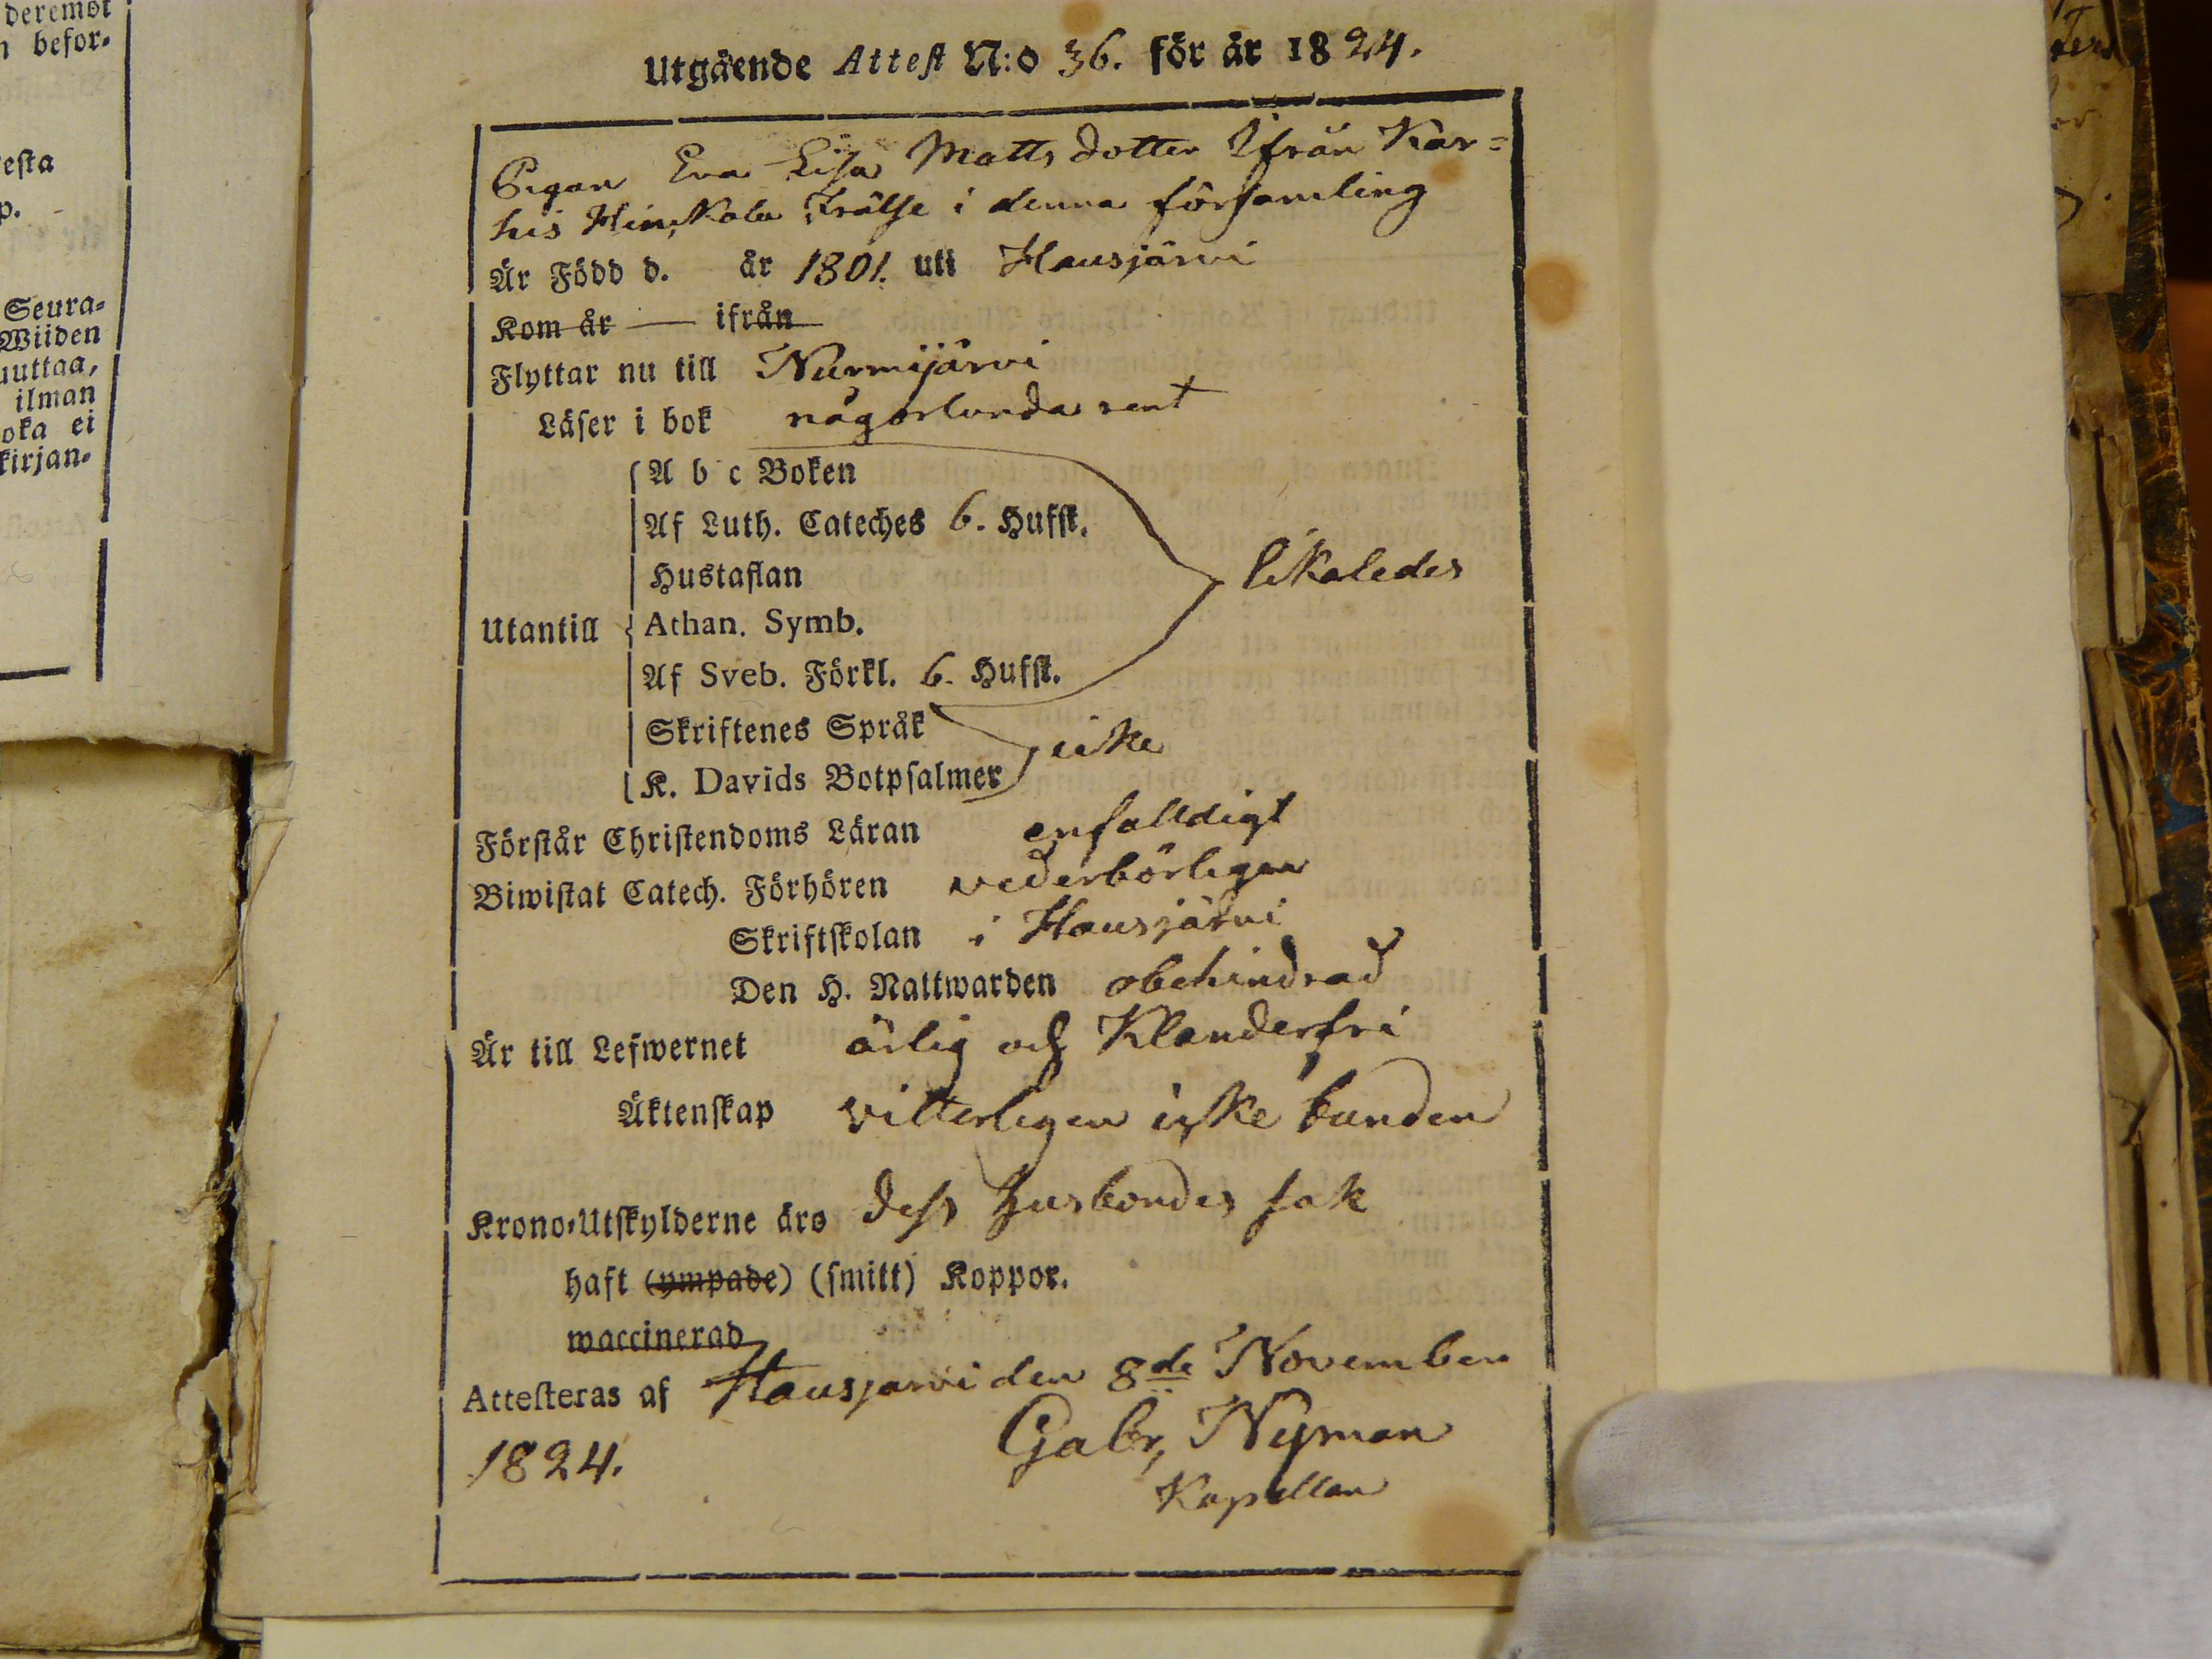 deremot
n befor-
esta
p.
Seura-
Wiiden
uuttaa,
ilman
oka ei
kirjan-
Utgående Attest N:o 36. för år 1824.
Pigan Eva Lisa Matts dotter ifrån Kar=
his Hinkala Frälse i denna församling
Är Född d. år 1801. uti Hausjärvi
Kom år — ifrån
Flyttar nu till Nurmijärvi
Läser i bok någorlunda rent
A b c Boken
Af Luth. Cateches 6. Hufst.
Hustaflan
likaledes
Utantill
Athan. Symb.
Af Sveb. Förkl. 6. Hufst.
Skriftenes Språk
icke
K. Davids Botpsalmer
Förstår Christendoms Läran enfalldigt
Biwistat Catech. Förhören vederbörligen
Skriftskolan i Hausjärvi
Den H. Nattwarden obehindrad
Är till Lefwernet ärlig och Klanderfri
Äktenskap vitterligen icke bunden
Krono-Utskylderne äro dess husbondes sak
haft (ympade) (smitt) Koppor.
waccinerad
Attesteras af Hausjarvi den 8de November
1824. Gabr, Nyman
Kapellan